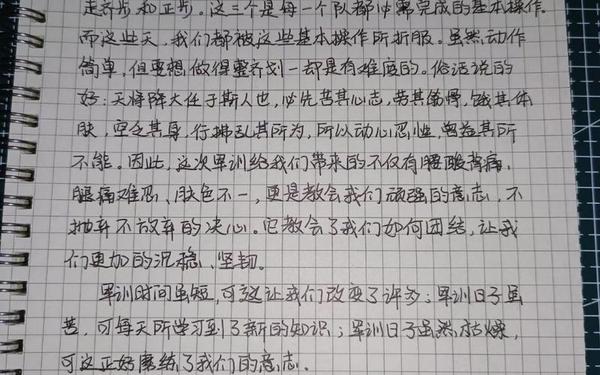 走齐步和正步。这三个是每一个队都必需完成的基本操作
而这些天，我们都被这些基本操作所折服。虽然动作
简单，但要想做得整齐划一却是有难度的。俗话说的
好：天将降大任于斯人也，必先苦其心志，劳其筋骨，饿其体
肤，空乏其身，行拂乱其所为，所以动心忍性，曾益其所
不能。因此，这次军训给我们带来的不仅有腰酸背痛、
腿痛难忍、肤色不一，更是教会我们顽强的意志，不
抛弃不放弃的决心。它教会了我们如何团结，让我
们更加的沉稳、坚韧。
军训时间虽短，可这让我们改变了许多；军训日子虽
苦，可每天所学习到了新的知识；军训日子虽然枯燥，
可这正好磨练了我们的意志。